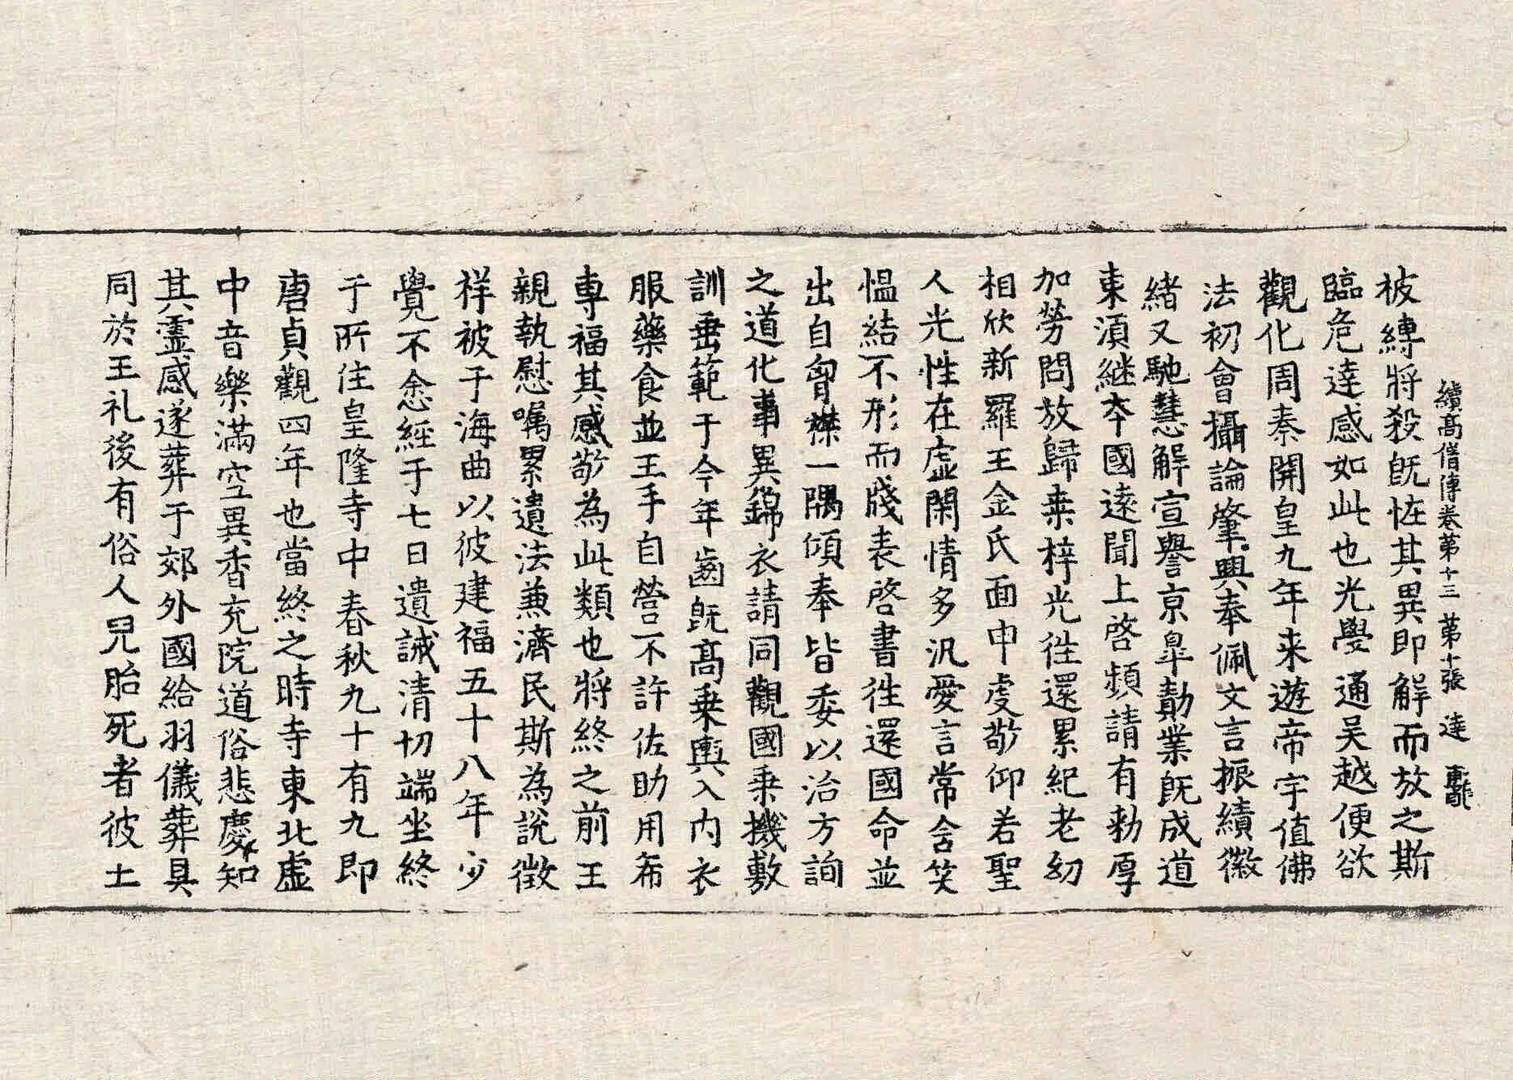 續高僧傳卷第十三 第十張 達
被縛將殺旣恠其異即解而放之斯
臨危達感如此也光學通吳越便欲
觀化周秦開皇九年来遊帝宇值佛
法初會攝論肇興奉佩文言振績徽
緒又馳慧解宣譽京皐勣業旣成道
東湏継夲國逺聞上啓頻請有勑厚
加勞問放歸桒梓光徃還累紀老幼
相欣新羅王金氏面申虔敬仰若聖
人光性在虛閑情多汎愛言常含笑
愠結不形而牋表啓書徃還國命並
出自胷襟一隅傾奉皆委以治方詢
之道化事異錦衣請同觀國乗機敷
訓垂範于今年齒旣髙乗輿入内衣
服藥食並王手自營不許佐助用希
專福其感敬為此類也將終之前王
親執慰嘱累遺法兼濟民斯為說徴
祥被于海曲以彼建福五十八年少
覺不悆經于七日遺誡清切端坐終
于所住皇隆寺中春秋九十有九即
唐貞觀四年也當終之時寺東北虛
中音樂滿空異香充院道俗悲慶知
其靈感遂葬于郊外國給羽儀葬具
同於王礼後有俗人兒胎死者彼土